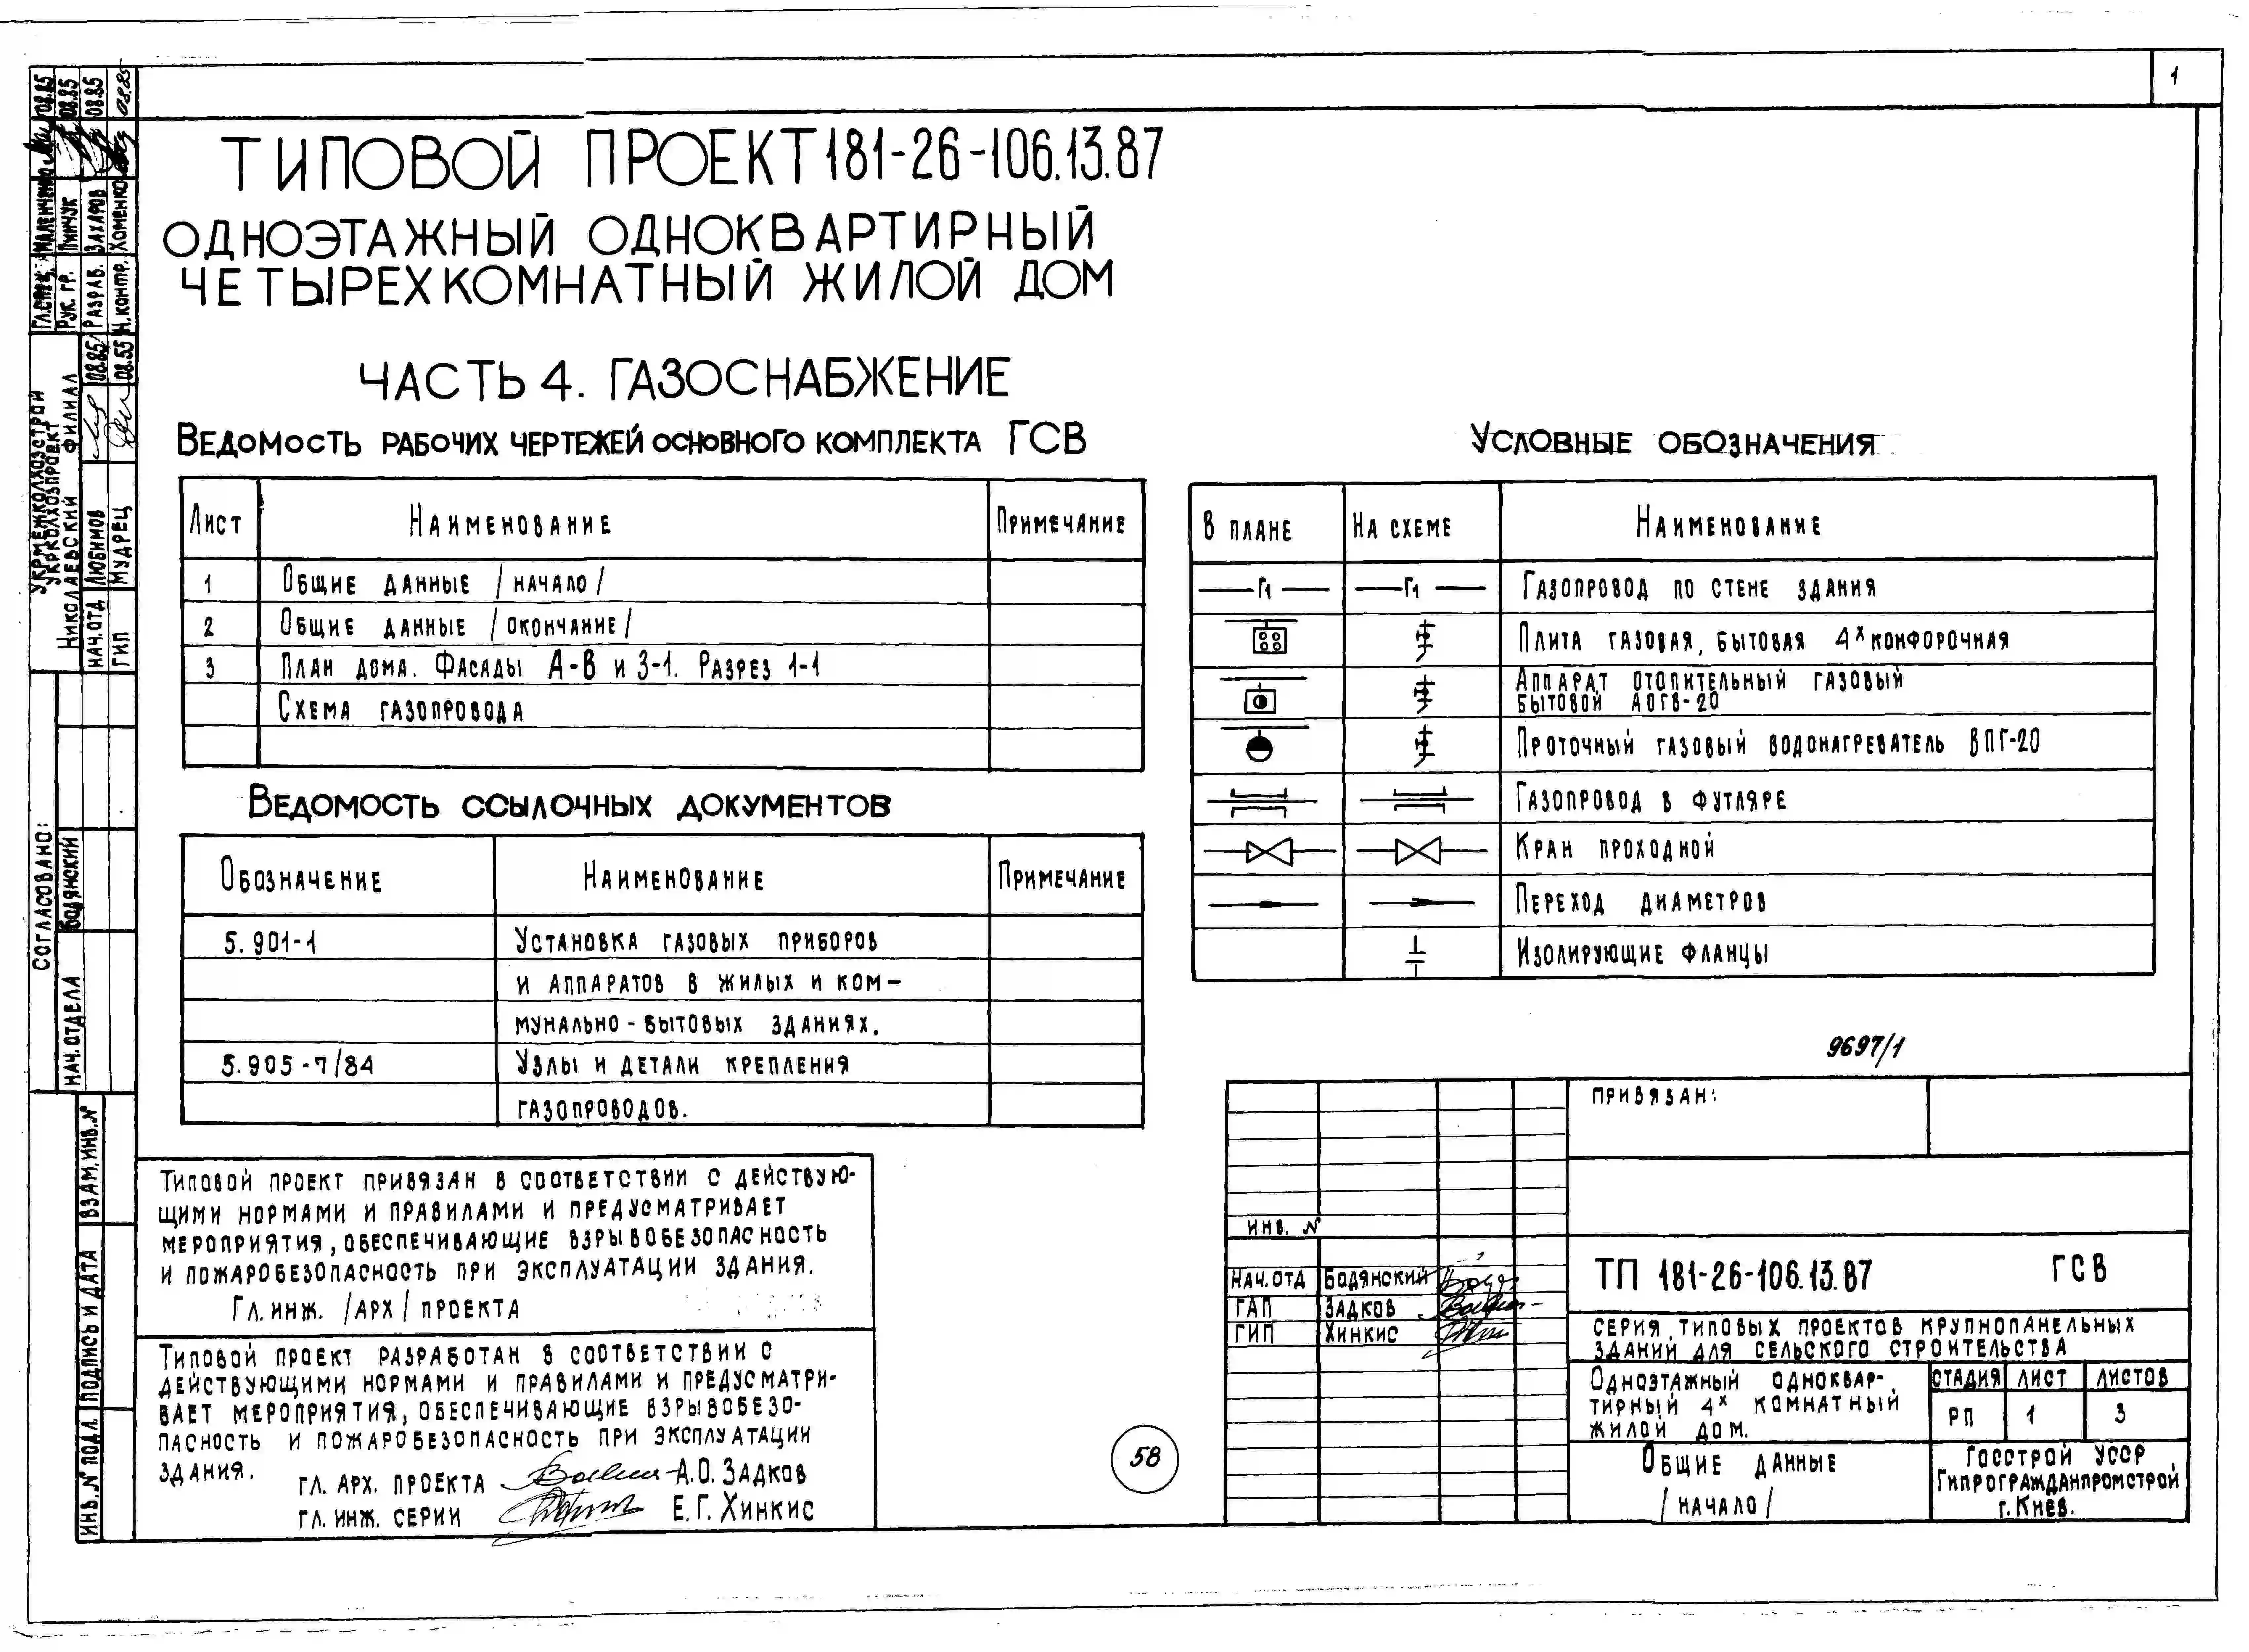 1
ТИПОВОЙ ПРОЕКТ 181-26-106.13.87
ОДНОЭТАЖНЫЙ ОДНОКВАРТИРНЫЙ
ЧЕТЫРЕХКОМНАТНЫЙ ЖИЛОЙ ДОМ
ЧАСТЬ 4. ГАЗОСНАБЖЕНИЕ
ВЕДОМОСТЬ РАБОЧИХ ЧЕРТЕЖЕЙ ОСНОВНОГО КОМПЛЕКТА ГСВ
ЛИСТ НАИМЕНОВАНИЕ ПРИМЕЧАНИЕ
1 ОБЩИЕ ДАННЫЕ /НАЧАЛО/
2 ОБЩИЕ ДАННЫЕ /ОКОНЧАНИЕ/
3 ПЛАН ДОМА. ФАСАДЫ А-В И 3-1. РАЗРЕЗ 1-1
СХЕМА ГАЗОПРОВОДА
ВЕДОМОСТЬ ССЫЛОЧНЫХ ДОКУМЕНТОВ
ОБОЗНАЧЕНИЕ НАИМЕНОВАНИЕ ПРИМЕЧАНИЕ
5.901-1 УСТАНОВКА ГАЗОВЫХ ПРИБОРОВ
И АППАРАТОВ В ЖИЛЫХ И КОМ-
МУНАЛЬНО-БЫТОВЫХ ЗДАНИЯХ.
5.905-7/84 УЗЛЫ И ДЕТАЛИ КРЕПЛЕНИЯ
ГАЗОПРОВОДОВ.
УСЛОВНЫЕ ОБОЗНАЧЕНИЯ
В ПЛАНЕ НА СХЕМЕ НАИМЕНОВАНИЕ
Г1 Г1 ГАЗОПРОВОД ПО СТЕНЕ ЗДАНИЯ
ПЛИТА ГАЗОВАЯ, БЫТОВАЯ 4Х КОНФОРОЧНАЯ
АППАРАТ ОТОПИТЕЛЬНЫЙ ГАЗОВЫЙ
БЫТОВОЙ АОГВ-20
ПРОТОЧНЫЙ ГАЗОВЫЙ ВОДОНАГРЕВАТЕЛЬ ВПГ-20
ГАЗОПРОВОД В ФУТЛЯРЕ
КРАН ПРОХОДНОЙ
ПЕРЕХОД ДИАМЕТРОВ
ИЗОЛИРУЮЩИЕ ФЛАНЦЫ
9697/1
ТИПОВОЙ ПРОЕКТ ПРИВЯЗАН В СООТВЕТСТВИИ С ДЕЙСТВУЮ-
ЩИМИ НОРМАМИ И ПРАВИЛАМИ И ПРЕДУСМАТРИВАЕТ
МЕРОПРИЯТИЯ, ОБЕСПЕЧИВАЮЩИЕ ВЗРЫВОБЕЗОПАСНОСТЬ
И ПОЖАРОБЕЗОПАСНОСТЬ ПРИ ЭКСПЛУАТАЦИИ ЗДАНИЯ.
ГЛ. ИНЖ. /АРХ/ ПРОЕКТА
ТИПОВОЙ ПРОЕКТ РАЗРАБОТАН В СООТВЕТСТВИИ С
ДЕЙСТВУЮЩИМИ НОРМАМИ И ПРАВИЛАМИ И ПРЕДУСМАТРИ-
ВАЕТ МЕРОПРИЯТИЯ, ОБЕСПЕЧИВАЮЩИЕ ВЗРЫВОБЕЗО-
ПАСНОСТЬ И ПОЖАРОБЕЗОПАСНОСТЬ ПРИ ЭКСПЛУАТАЦИИ
ЗДАНИЯ.
ГЛ. АРХ. ПРОЕКТА А.О. ЗАДКОВ
ГЛ. ИНЖ. СЕРИИ Е.Г. ХИНКИС
58
ПРИВЯЗАН:
ИНВ. №
НАЧ.ОТД БОДЯНСКИЙ
ГАП ЗАДКОВ
ГИП ХИНКИС
ТП 181-26-106.13.87 ГСВ
СЕРИЯ ТИПОВЫХ ПРОЕКТОВ КРУПНОПАНЕЛЬНЫХ
ЗДАНИЙ ДЛЯ СЕЛЬСКОГО СТРОИТЕЛЬСТВА
ОДНОЭТАЖНЫЙ ОДНОКВАР-
ТИРНЫЙ 4Х КОМНАТНЫЙ
ЖИЛОЙ ДОМ.
СТАДИЯ ЛИСТ ЛИСТОВ
РП 1 3
ОБЩИЕ ДАННЫЕ
/НАЧАЛО/
ГОССТРОЙ УССР
ГИПРОГРАЖДАНПРОМСТРОЙ
Г. КИЕВ.
УКРМЕЖКОЛХОЗСТРОЙ
УКРКОЛХОЗПРОЕКТ
НИКОЛАЕВСКИЙ ФИЛИАЛ
РУК. ГР. ПИНЧУК 08.85
РАЗРАБ. ЗАХАРОВ 08.85
Н.КОНТР. ХОМЕНКО 08.85
НАЧ.ОТД ЛЮБИМОВ 08.85
ГИП МУДРЕЦ 08.55
СОГЛАСОВАНО:
НАЧ.ОТДЕЛА БОДЯНСКИЙ
ВЗАМ.ИНВ.№
ПОДПИСЬ И ДАТА
ИНВ.№ ПОДЛ